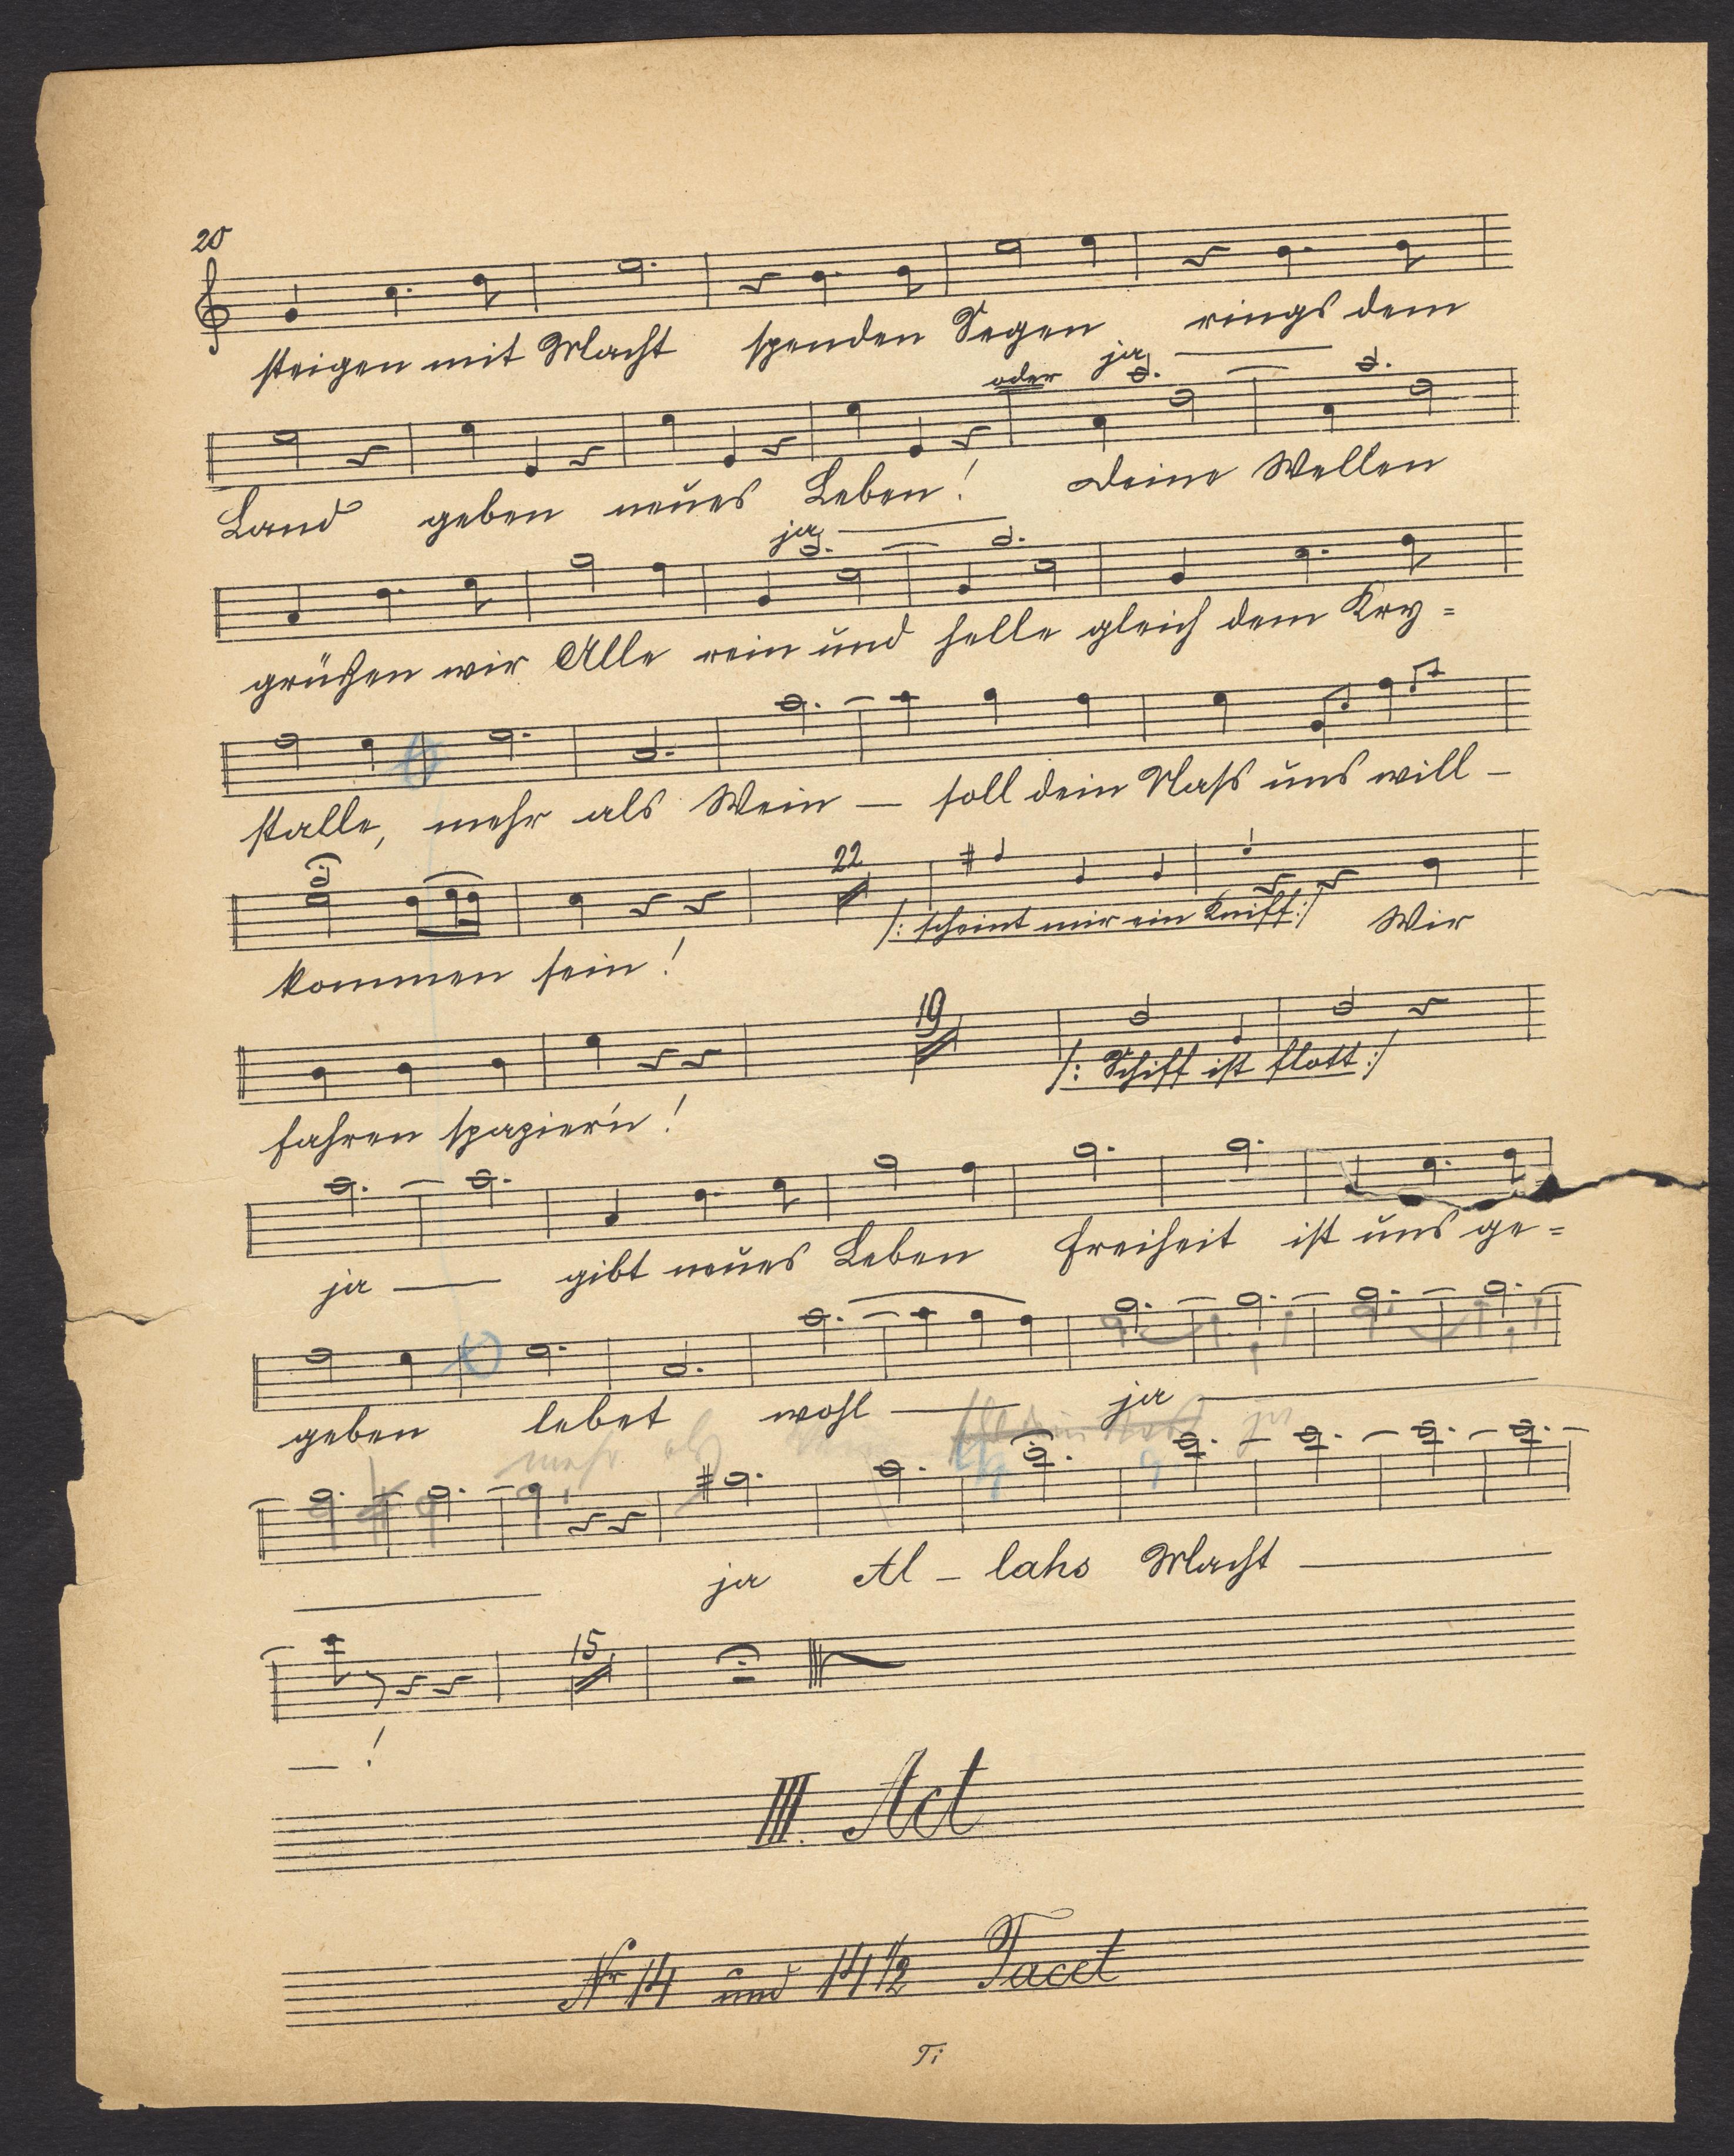 20
steigen mit Macht spenden Segen rings dem
oder ja
Land geben neues Leben! Deine Wellen
ja
grüßen wir Alle rein und helle gleich dem Kry=
stalle, mehr als Wein — soll dein Naß uns will–
22
/: scheint mir ein Kniff :/ Wir
kommen sein!
19
/: Schiff ist flott :/
fahren spazier'n!
ja — gibt neues Leben Freiheit ist uns ge=
geben lebet wohl — ja —
mehr als ja
ja Al–lahs Macht —
15
— !
III. Act
Nr 14 und 14 1/2 Tacet
Ti